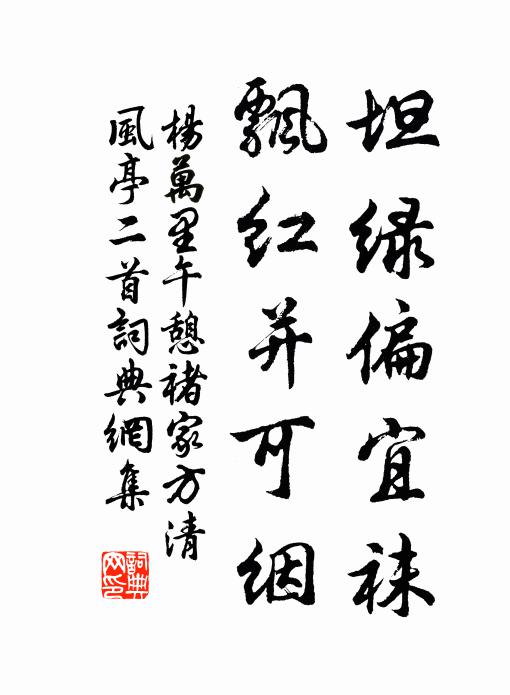 坦緑偏宜袜
飄紅并可絪
楊萬里午憩褚家方清
風亭二首詞典網集
詞典
网印